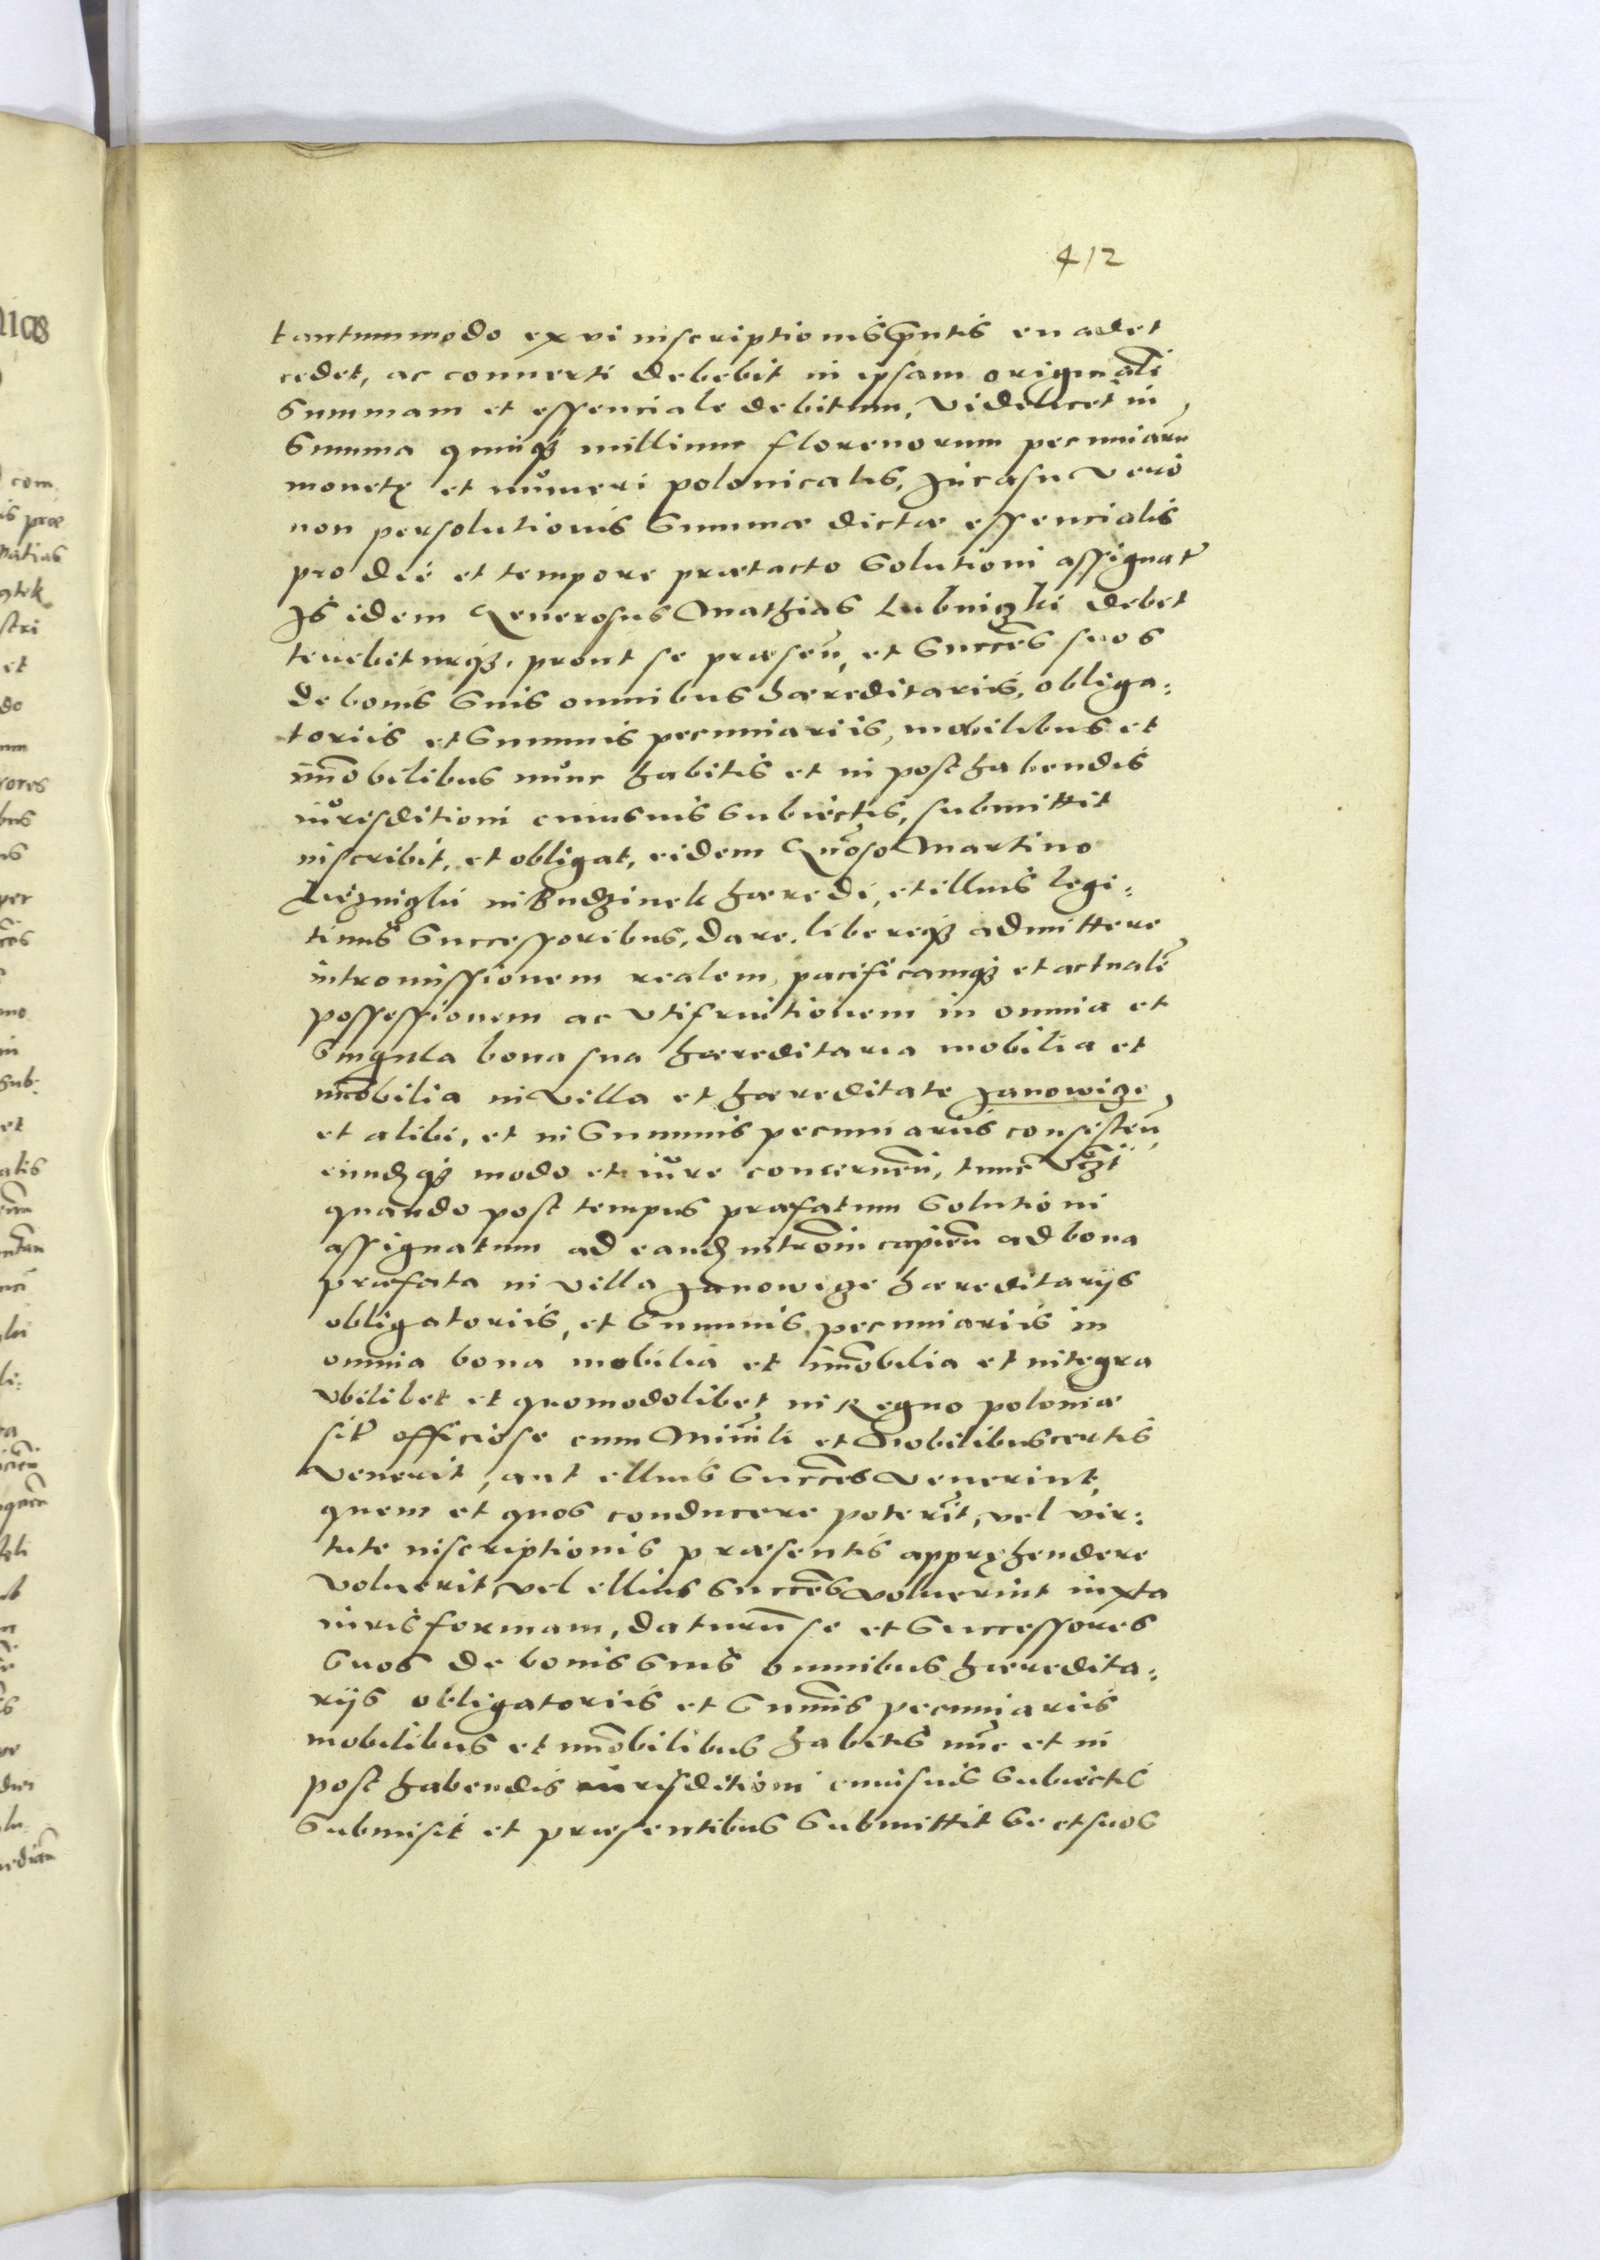 412
tantummodo ex vi inscriptionis pntis euadet
cedet, ac conuerti debebit in ipsam originali
Summam et essenciale debitum, videlicet in
Summa quinque millium florenorum pecuniaru
monetę et numeri polonicalis, In casu vero
non persolutionis Summæ dictæ essencialis
pro die et tempore prætacto Solutioni assignat
Is idem Generosus Mathias Lubnizki debet
tenebiturque, prout se præsen, et Succes suos
de bonis Suis omnibus hæreditariis, obliga:
toriis et Summis pecuniariis, mobilibus et
imobilibus nunc habitis et in post habendis
iurisditioni cuiusuis Subiectis, submittit
inscribit, et obligat, eidem Gnoso Martino
in Budzinek hæredi, et illius legi:
timis Successoribus, dare, libereque admittere
intromissionem realem, pacificamque et actuale
possessionem ac vtifruitionem in omnia et
Singula bona sua hæreditaria mobilia et
imobilia in villa et hæreditate Janowize
et alibi, et in Summis pecuniariis consisten
eiundque modo et iure concernen, tunc vzt
quando post tempus præfatum Solutioni
assignatum ad eand introm capien ad bona
præfata in villa Janowize hæreditarijs
obligatoriis, et Summis pecuniariis in
omnia bona mobilia et imobilia et integra
vbilibet et quomodolibet in Regno poloniæ
sit officiose cum Minrili et Nobilibus certis
venerit, aut illius Succes venerint,
quem et quos conducere poterit, vel vir:
tute inscriptionis præsentis appręhendere
voluerit, vel illius Succes voluerint iuxta
iuris formam, daturu se et Successores
Suos de bonis Suis omnibus hæredita:
rijs obligatoriis et Sumis pecuniariis
mobilibus et imobilibus habitis nuc et in
post habendis iurisditioni cuiusuis Subiectis
Submisit et præsentibus Submittit Se et suos